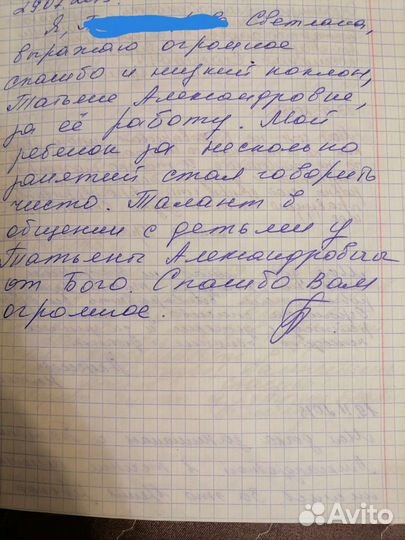 Я, Светлана,
выражаю огромное
спасибо и низкий поклон,
Татьяне Александровне,
за её работу. Мой
ребенок за несколько
занятий стал говорить
чисто. Талант в
общении с детьми у
Татьяны Александровны
от Бога. Спасибо Вам
огромное.
Avito